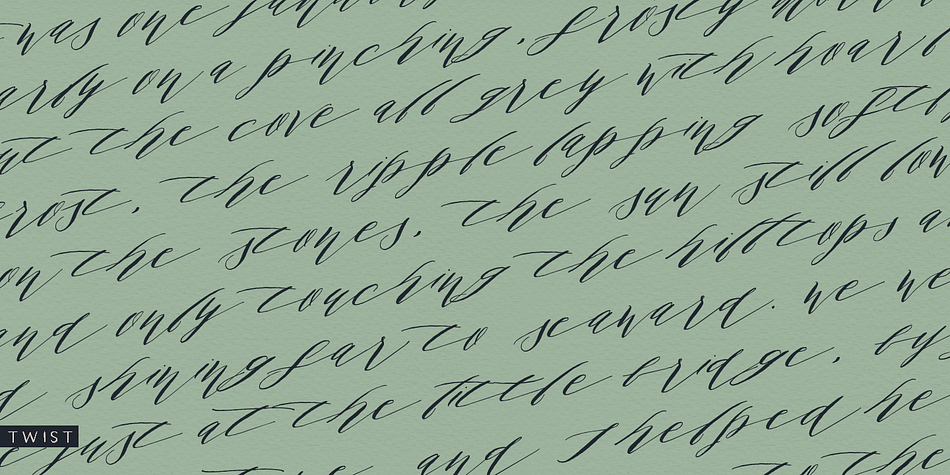 was one january
early on a pinching, frosty mor
at the cove all grey with hoar f
frost, the ripple lapping soft
on the stones, the sun still low
and only touching the hilltops a
and shining far to seaward. we we
just at the little bridge, by
and I helped he
TWIST